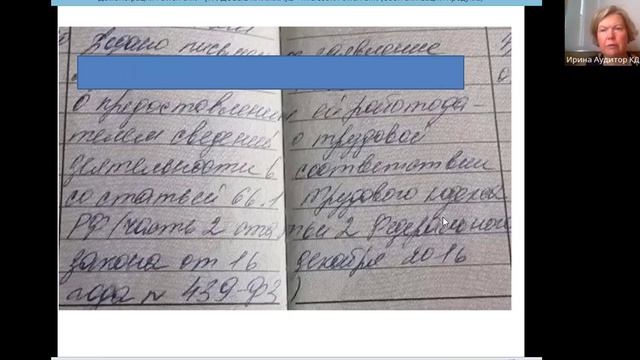 Ирина Аудитор КД
Подано письменное заявление
о предоставлении ей работода-
телем сведений о трудовой
деятельности в соответствии
со статьей 66.1 Трудового кодекса
РФ (часть 2 статьи 2 Федерального
закона от 16 декабря 2016
года № 439-ФЗ)